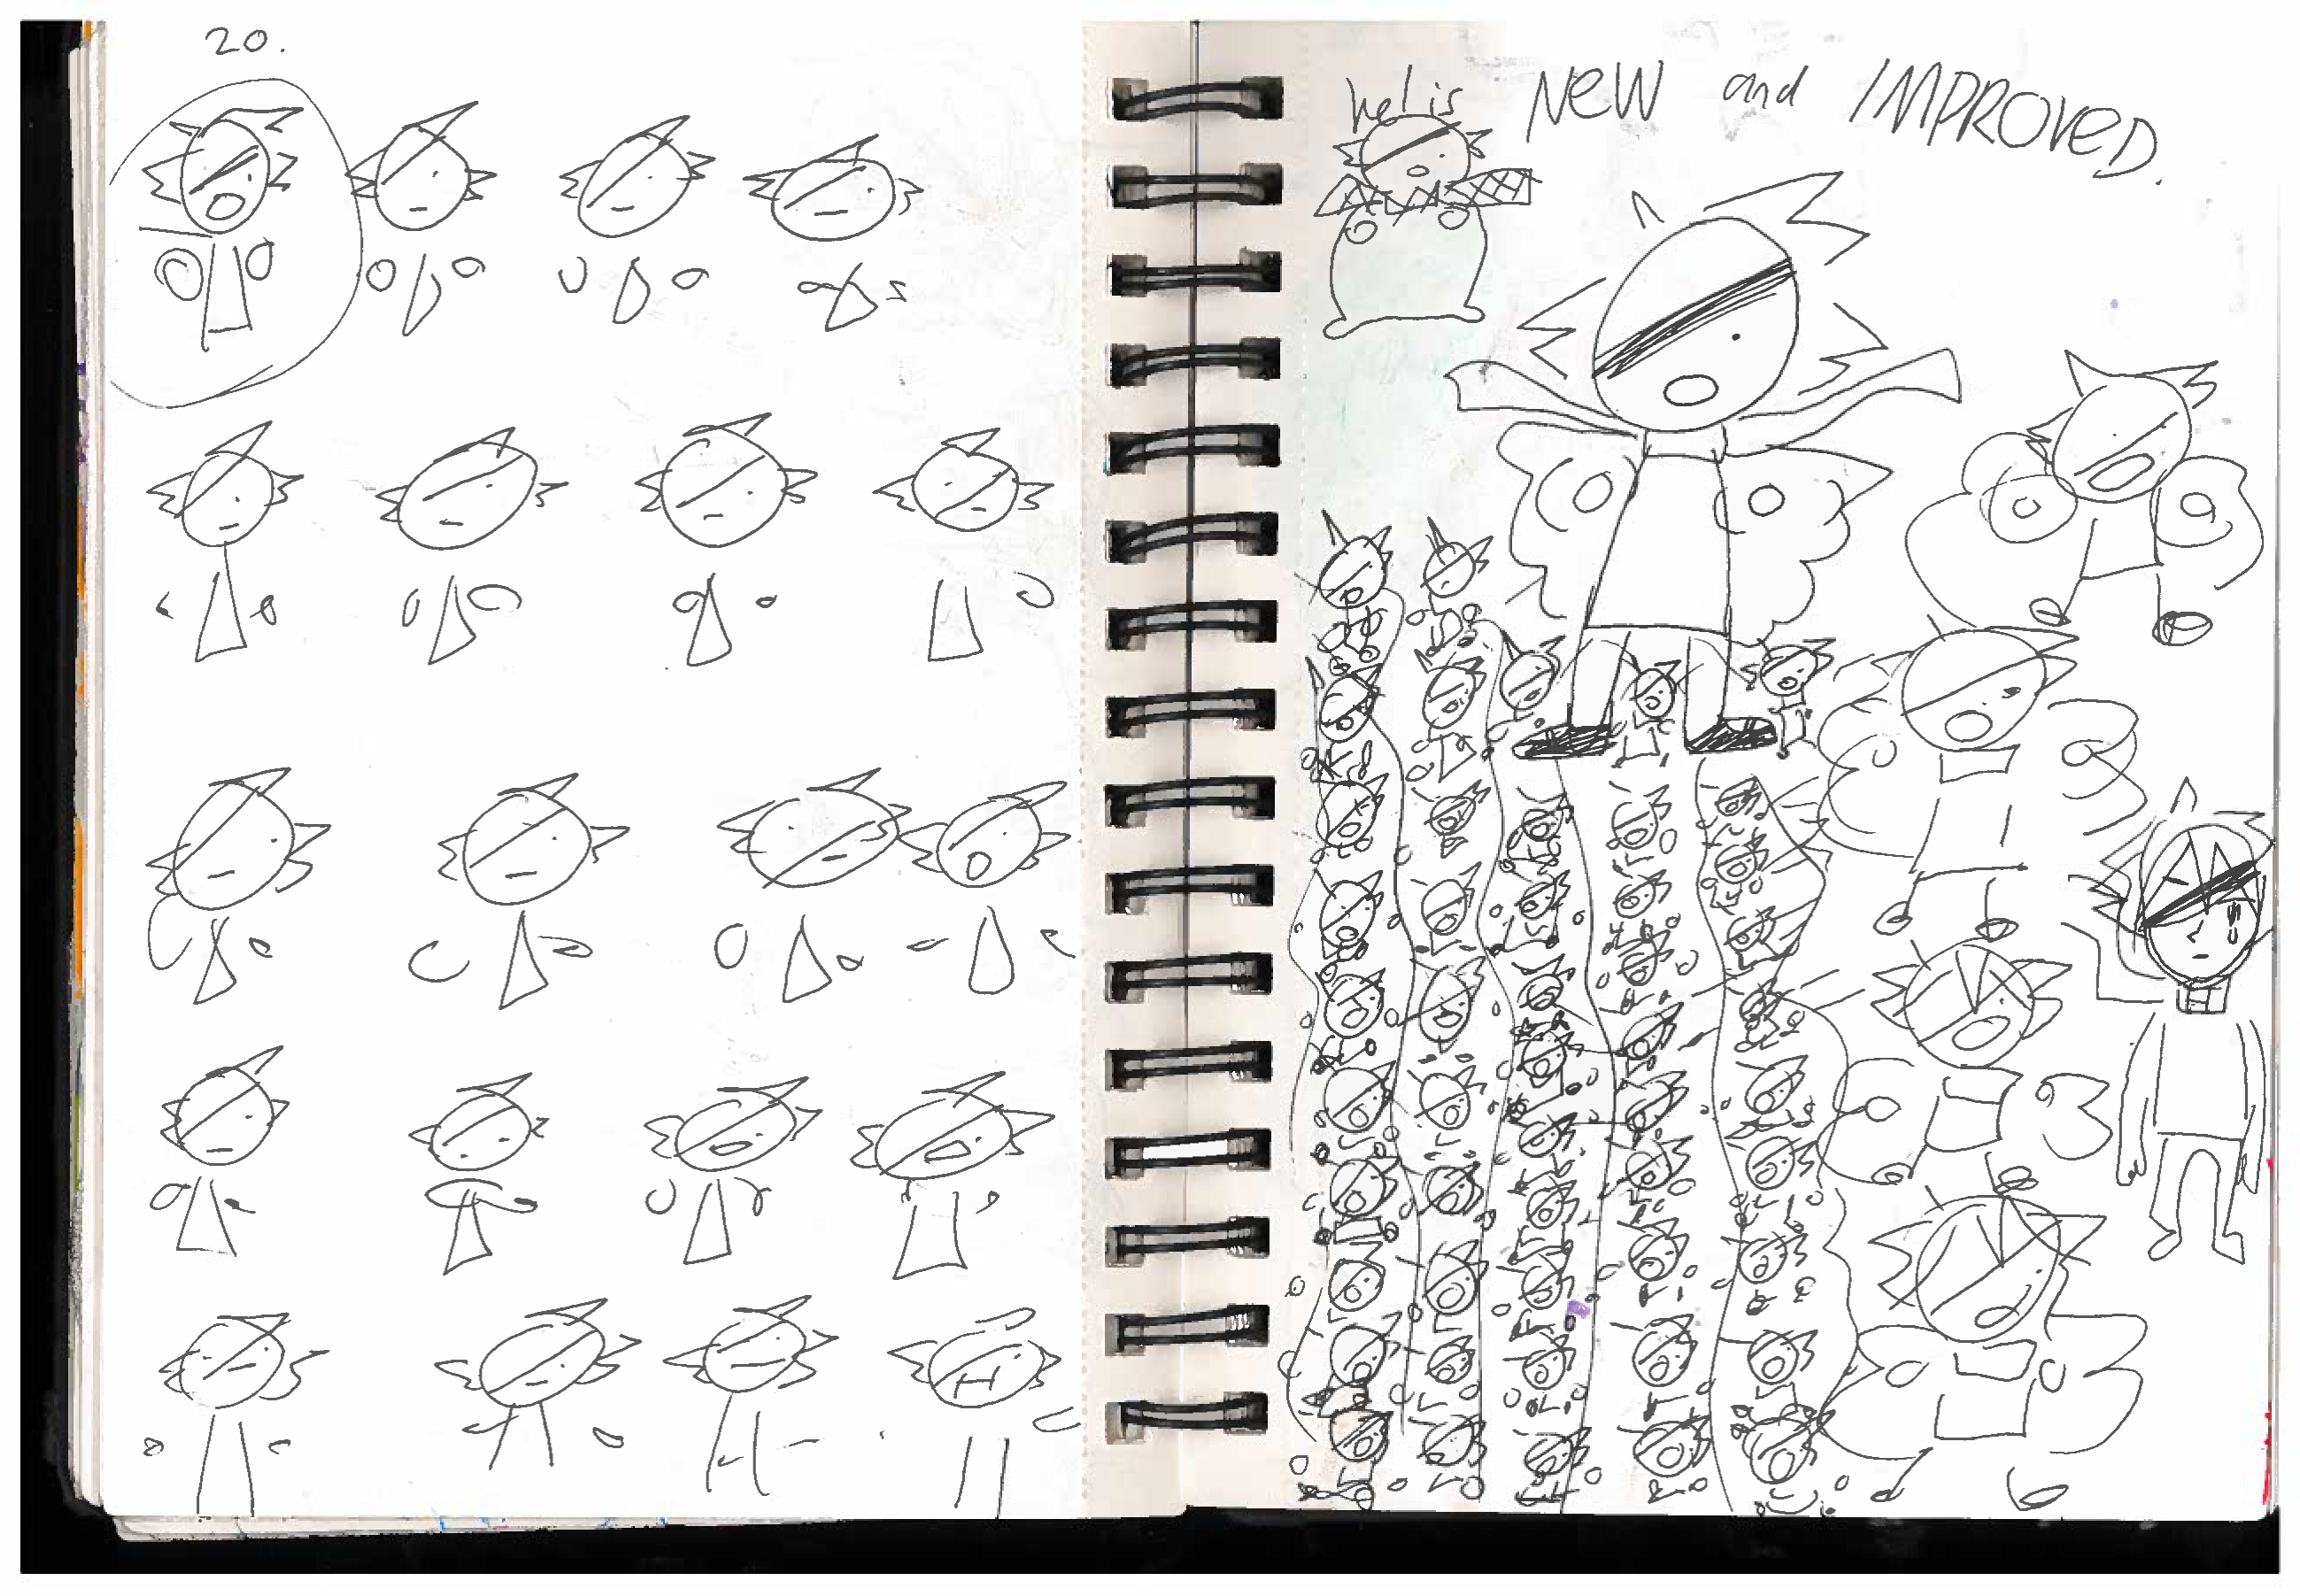 20.
he is NEW and IMPROVED.